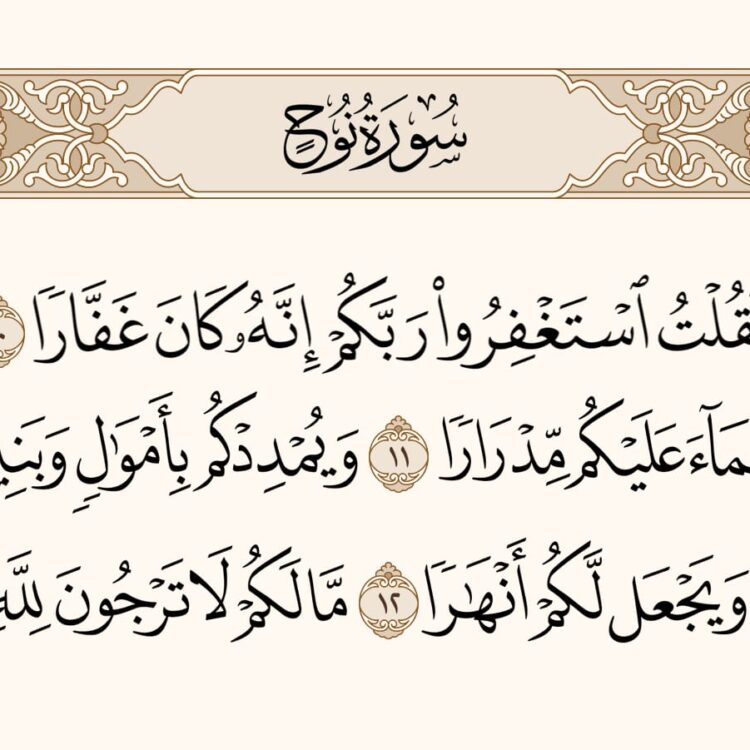 سُورَةُ نُوحٍ
قُلْتُ ٱسْتَغْفِرُوا۟ رَبَّكُمْ إِنَّهُۥ كَانَ غَفَّارًا
مَآءَ عَلَيْكُم مِّدْرَارًا ١١ وَيُمْدِدْكُم بِأَمْوَٰلٍ وَبَنِي
وَيَجْعَل لَّكُمْ أَنْهَٰرًا ١٢ مَّا لَكُمْ لَا تَرْجُونَ لِلَّهِ